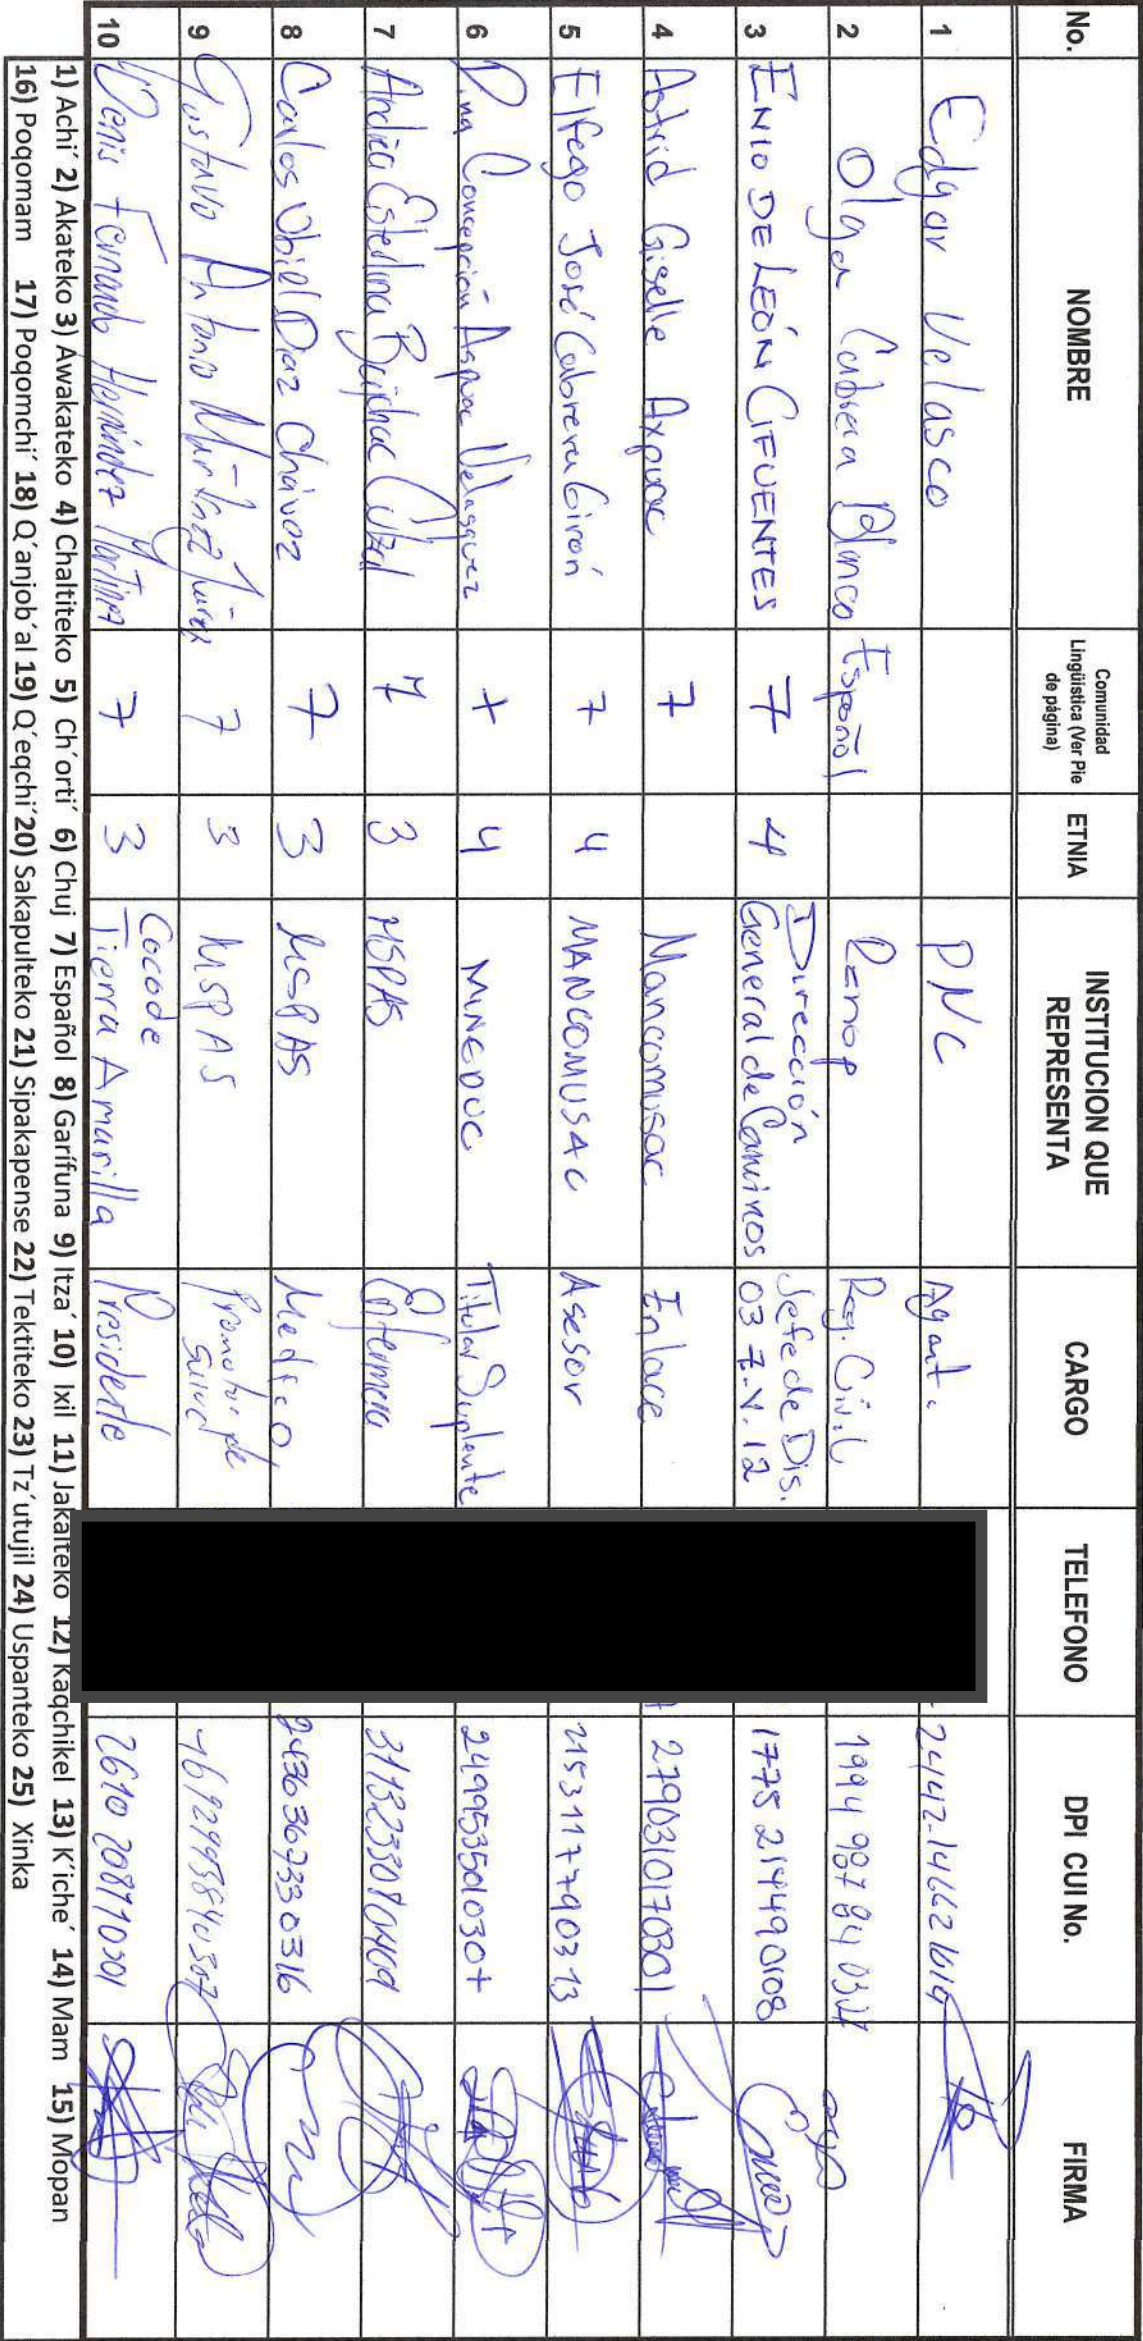 No. NOMBRE Comunidad Lingüistica (Ver Pie de página) ETNIA INSTITUCION QUE REPRESENTA CARGO TELEFONO DPI CUI No. FIRMA
1 Edgar Velasco PNC Agente
2 Olga Cabrera Blanco Español Renap Reg. Civil 1994
3 ENIO DE LEÓN CIFUENTES 7 4 Dirección General de Caminos Jefe de Dis. 03 Z.V. 12 1775 214490108
4 Astrid Giselle Axpuac 7 Mancomusac Enlace 2790310170301
5 Elfego José Cabrera Girón 7 4 MANCOMUSAC Asesor 2153117790313
6 Dina Concepción Axpuac Velasquez 7 4 MINEDUC Titular Suplente 2499535010307
7 Andrea Esterlina 7 3 MSPAS Enfermera
8 Carlos Obiel Díaz Chávez 7 3 MSPAS Medico 2436367330316
9 Gustavo Antonio Martínez Juárez 7 3 MSPAS Promotor de Salud
10 Denis Fernando Hernández Martínez 7 3 Cocode Tierra Amarilla Presidente 2610
1) Achi´ 2) Akateko 3) Awakateko 4) Chaltiteko 5) Ch´orti´ 6) Chuj 7) Español 8) Garífuna 9) Itza´ 10) Ixil 11) Jakalteko 12) Kaqchikel 13) K´iche´ 14) Mam 15) Mopan
16) Poqomam 17) Poqomchi´ 18) Q´anjob´al 19) Q´eqchi´ 20) Sakapulteko 21) Sipakapense 22) Tektiteko 23) Tz´utujil 24) Uspanteko 25) Xinka